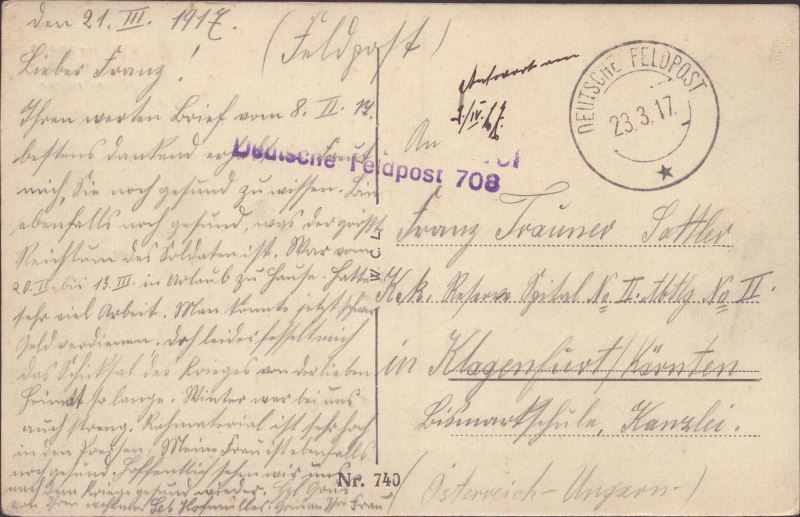 den 21. III. 1917.
(Feldpost)
Lieber Franz!
Ihren werten Brief vom 8. II. 17.
bestens dankend Freut
mich, Sie noch gesund zu wissen. Bin
ebenfalls noch gesund, was der größte
Reichtum des Soldaten ist. War vom
20. II. bis 13. III. in Urlaub zu Hause. Hatte
sehr viel Arbeit. Man könnte jetzt schwer
Geld verdienen. Doch leider fesselt mich
das Schicksal des Krieges von der lieben
Heimat so lange. Winter war bei uns
auch streng. Rohmaterial ist sehr hoch
in den Preisen. Meine Frau ist ebenfalls
noch gesund. Hoffentlich sehen wir uns
nach dem Kriege gesund wieder.
Antwort am
2/IV. 17.
DEUTSCHE FELDPOST
23.3.17.
Deutsche Feldpost 708
An
Franz Trauner Sattler
K.k. Reserve Spital No II. Abtlg No II.
in Klagenfurt/Kärnten
Bismarkschule, Kanzlei.
(Österreich-Ungarn)
W. C. L.
Nr. 740